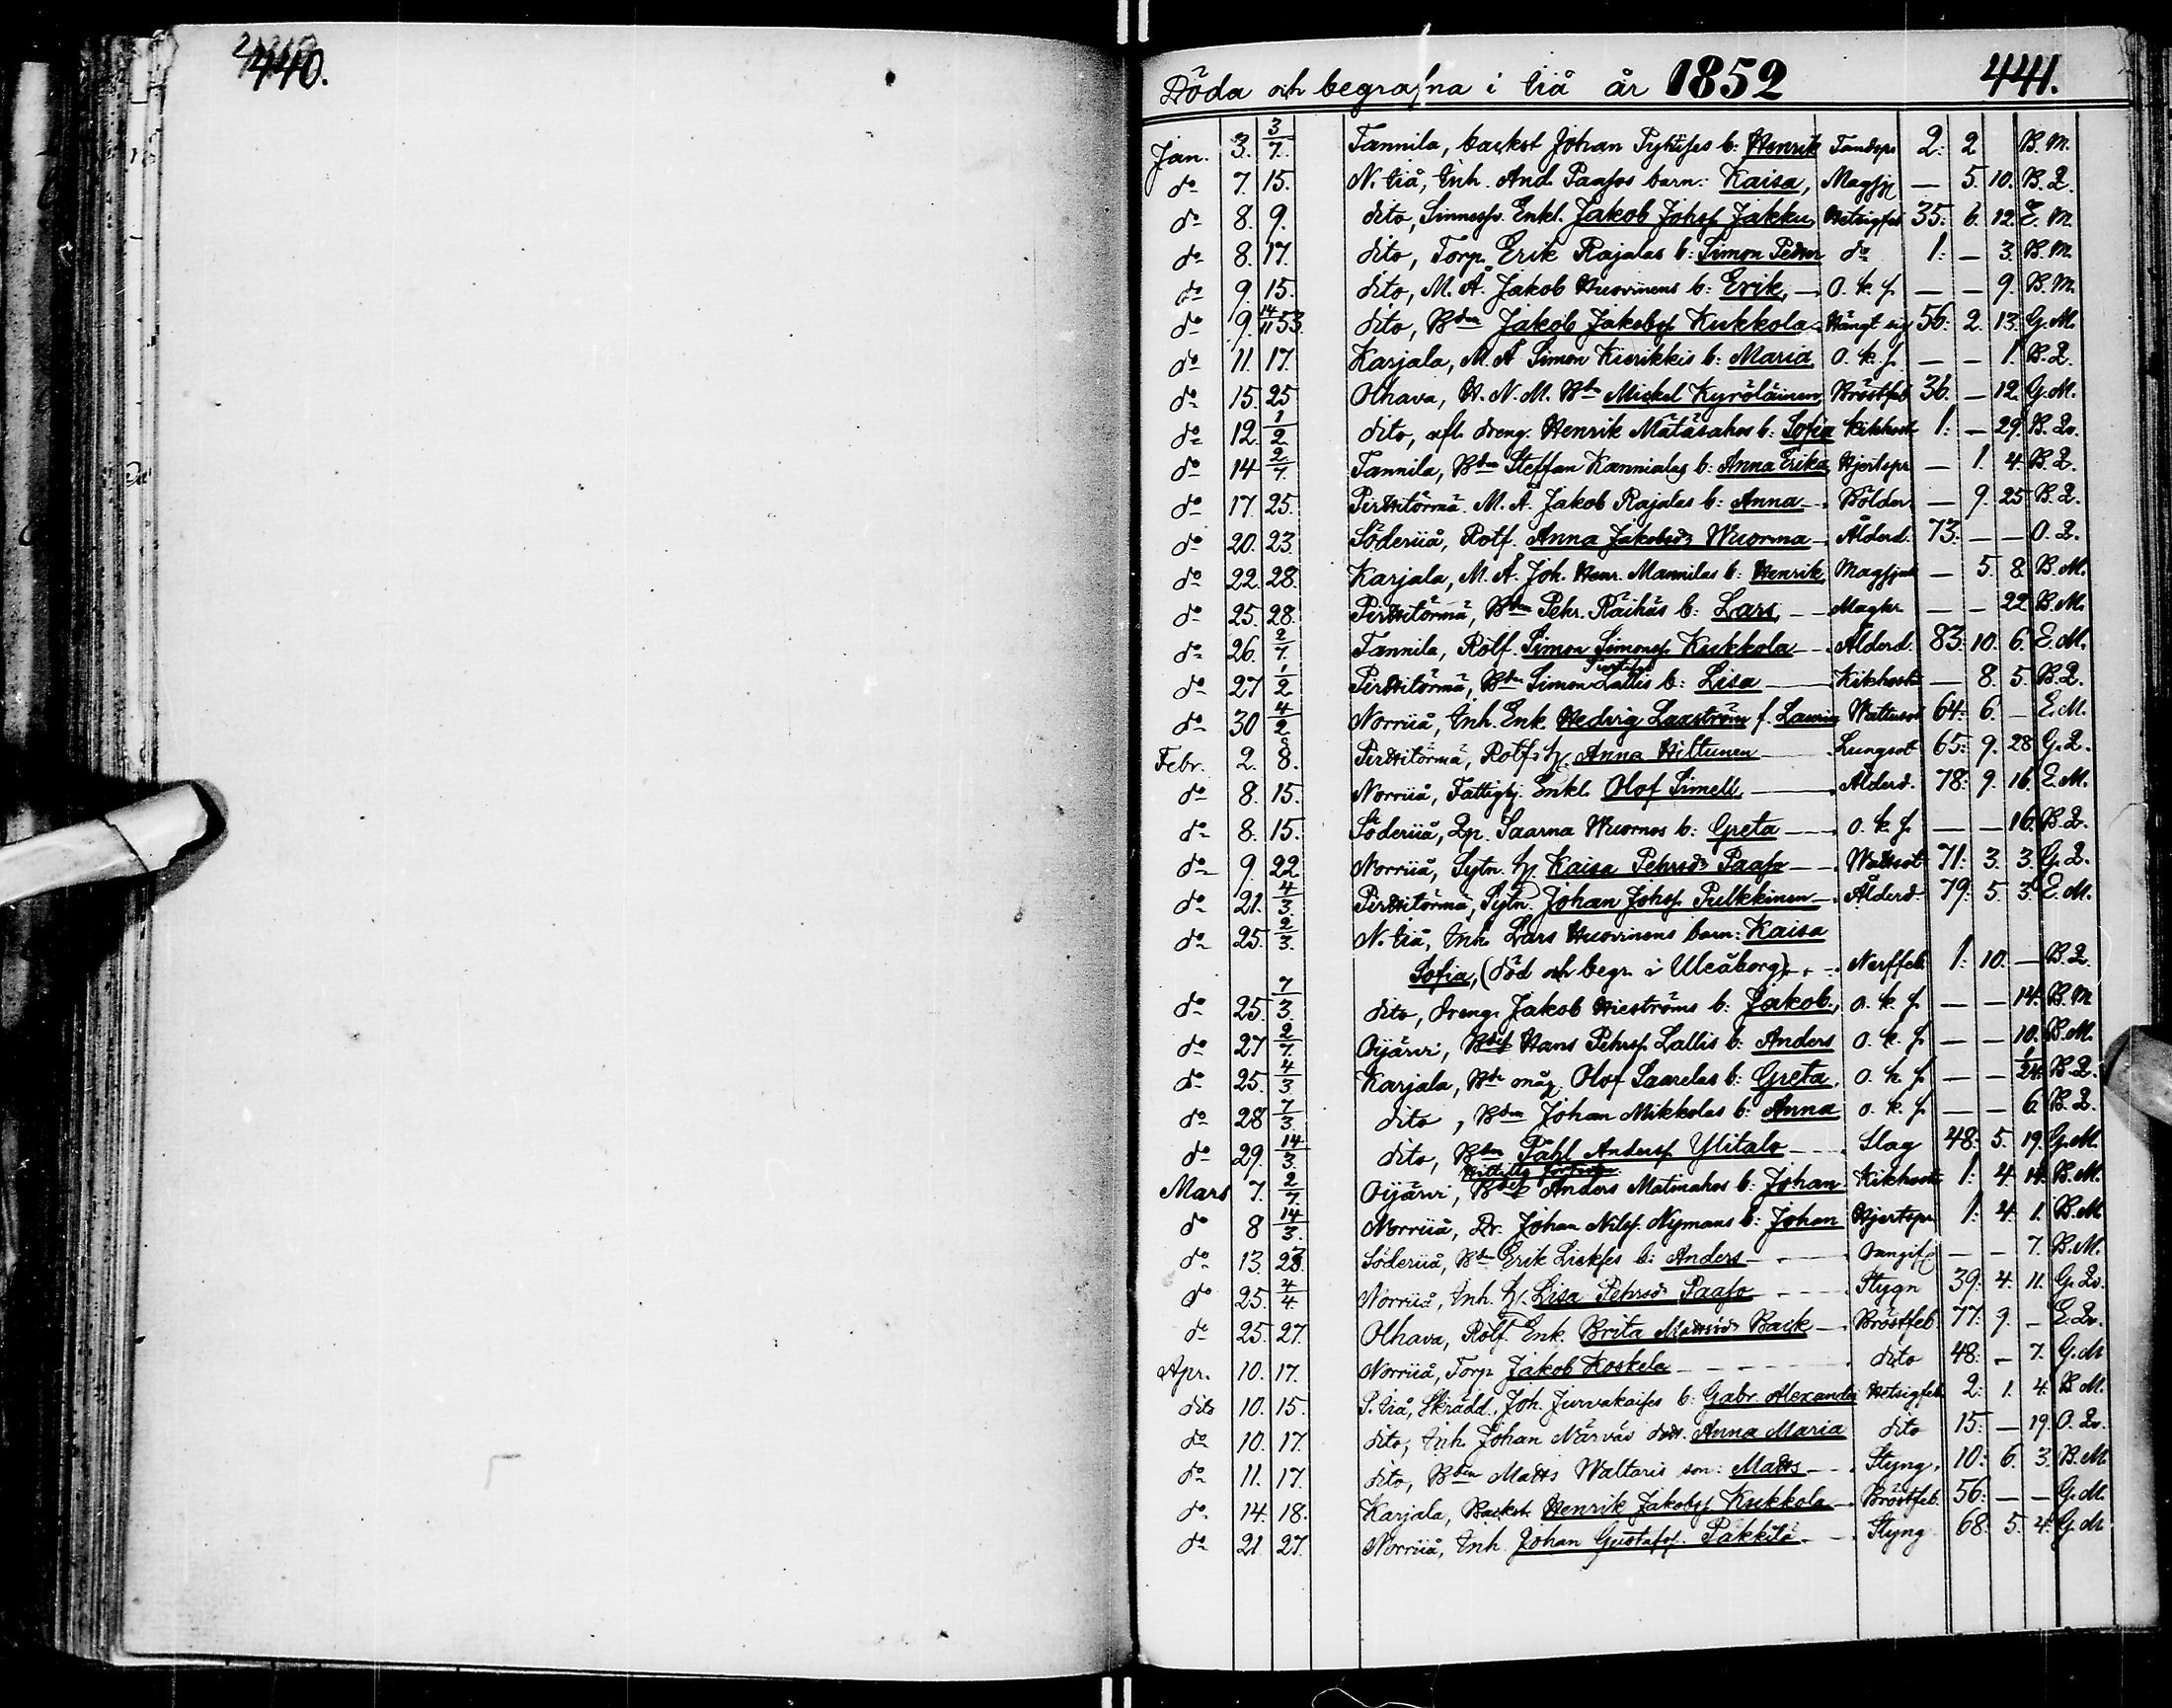 440.
Döda och begrafna i Iiå år 1852 441.
Jan. 3. 3/7. Tannila, backst Johan b: Henrik Tandspr 2: 2 B. M.
do 7. 15. N. Iiå, Inh. And. Paasos barn: Kaisa, Magsj — 5. 10. B. Q.
do 8. 9. dito, Sinnessv. Enkl. Jakob Johsf Jakku, Hetsigfeb 35: 6. 12. E. M.
do 8. 17. dito, Torp. Erik Rajalas b: Simon Peder do 1: — 3. B. M.
do 9. 15. dito, M. Å. Jakob Huovinens b: Erik, — O. k. s. — — 9. B. M.
do 9. 14/11 53. dito, Bden Jakob Jakobsf Kukkola Hängt sig 56: 2. 13. G. M.
do 11. 17. Karjala, M. Å Simon Kierikkis b: Maria O. k. s. — — 1. B. Q.
do 15. 25 Olhava, H. N. M. Bdn Mickel Kyröläinen Bröstfeb 36. — 12. G. M.
do 12. 1/2 dito, afl. dreng. Henrik Mätäsahos b: Sofia Kikhost 1: — 29. B. Qv.
do 14 2/7. Tannila, Bden Steffan Kannialas b: Anna Erika Hjertspr — 1. 4. B. Q.
do 17 25. Pirttitörmä. M. Å. Jakob Rajalas b: Anna — Bölder — 9. 25 B. Q.
do 20. 23. Söderiiå, Rotf. Anna Jakobsdr Wuorma — Ålderd. 73. — — O. Q.
do 22. 28. Karjala, M. Å. Joh. Henr. Mannilas b: Henrik Magsjuk — 5. 8. B. M.
do 25. 28. Pirttitörmä, Bden Pehr. Räihäs b: Lars, — Magkr — — 22. B. M.
do 26. 2/7. Tannila, Rotf. Simon Simonsf Kukkola — Ålderd. 83: 10. 6. E. M.
do 27 1/2 Pirttitörmä, Bdn Simon Lallis b: Lisa — Kikhosta — 8. 5. B. Q.
do 30 4/2 Norriiå, Inh. Enk. Hedvig Laxström f. Wattusot 64: 6. — E. M.
Febr. 2. 8. Pirttitörmä, Rotfs hj. Anna Hiltunen — Lungsot 65: 9. 28 G. Q.
do 8. 15. Norriiå, Fattighj. Enkl. Olof Simell — Ålderd. 78: 9. 16. E. M.
do 8. 15. Söderiiå, Qp. Saarna Wuornos b: Greta — O. k. s. — — 16. B. Q.
do 9. 22 Norriiå, Sytn. hj. Kaisa Pehrsdr Paaso — Wattsot 71: 3. 3. G. Q.
do 21. 4/3. Pirttitörmä, Sytn. Johan Johsf Pulkkinen — Ålderd. 79: 5. 3. E. M.
do 25. 2/3. N. Iiå, Inh. Lars Huovinens barn: Kaisa
Sofia, (död och begr. i Uleåborg) — Nerffeb. 1: 10. — B. Q.
do 25. 7/3. dito, dreng. Jakob Wieströms b: Jakob., O. k. s. — — 14. B. M
do 27 2/7. Oijärvi, Hans Pehrsf. Lallis b: Anders O. k. s. — — 10. B. M.
do 25. 4/3 Karjala, Bde måg. Olof Saarelas b: Greta. O. k. s. — — 1/24. B. Q.
do 28 7/3. dito, Bden Johan Mikkolas b: Anna O. k. s. — — 6. B. Q.
do 29. 14/3. dito, Bden Påhl Andersf Ylitalo — Slag 48: 5. 19. G. M.
Mars 7. 2/7. Oijärvi, Anders Matinahos b: Johan Kikhosta 1: 4. 14. B. M.
do 8 14/3. Norriiå, Dr. Johan Nilsf. Nymans b: Johan Hjertspr 1: 4. 1. B. M
do 13. 23. Söderiiå, Bdn Erik Liekkes b: Anders — Oangif. — — 7. B. M.
do 25. 4/4. Norriiå, Inh. hj. Lisa Pehrsdr Paaso — Stygn 39: 4. 11. G. Qv.
do 25. 27. Olhava, Rotf. Enk. Brita Mattsdr Back — Bröstfeb. 77: 9. — E. Qv.
Apr. 10. 17. Norriiå, Torp. Jakob Koskela — dito 48: — 7. G. M
dito 10. 15. S. Iiå, Skrädd. Joh. Jurvakaises b: Gabr. Alexander Hetsigfeb. 2: 1. 4. B. M.
do 10. 17. dito, Inh. Johan Närväs dott. Anna Maria dito 15: — 19. O. Qv.
do 11. 17. dito, Bden Matts Waltaris son: Matts — Styng. 10: 6. 3. B. M.
do. 14. 18. Karjala, Backst. Henrik Jakobsf Kukkola — Bröstfeb. 56: — — G. M.
do 21. 27. Norriiå, Inh. Johan Gustafsf. Pakkila — Styng 68: 5. 4. G. M